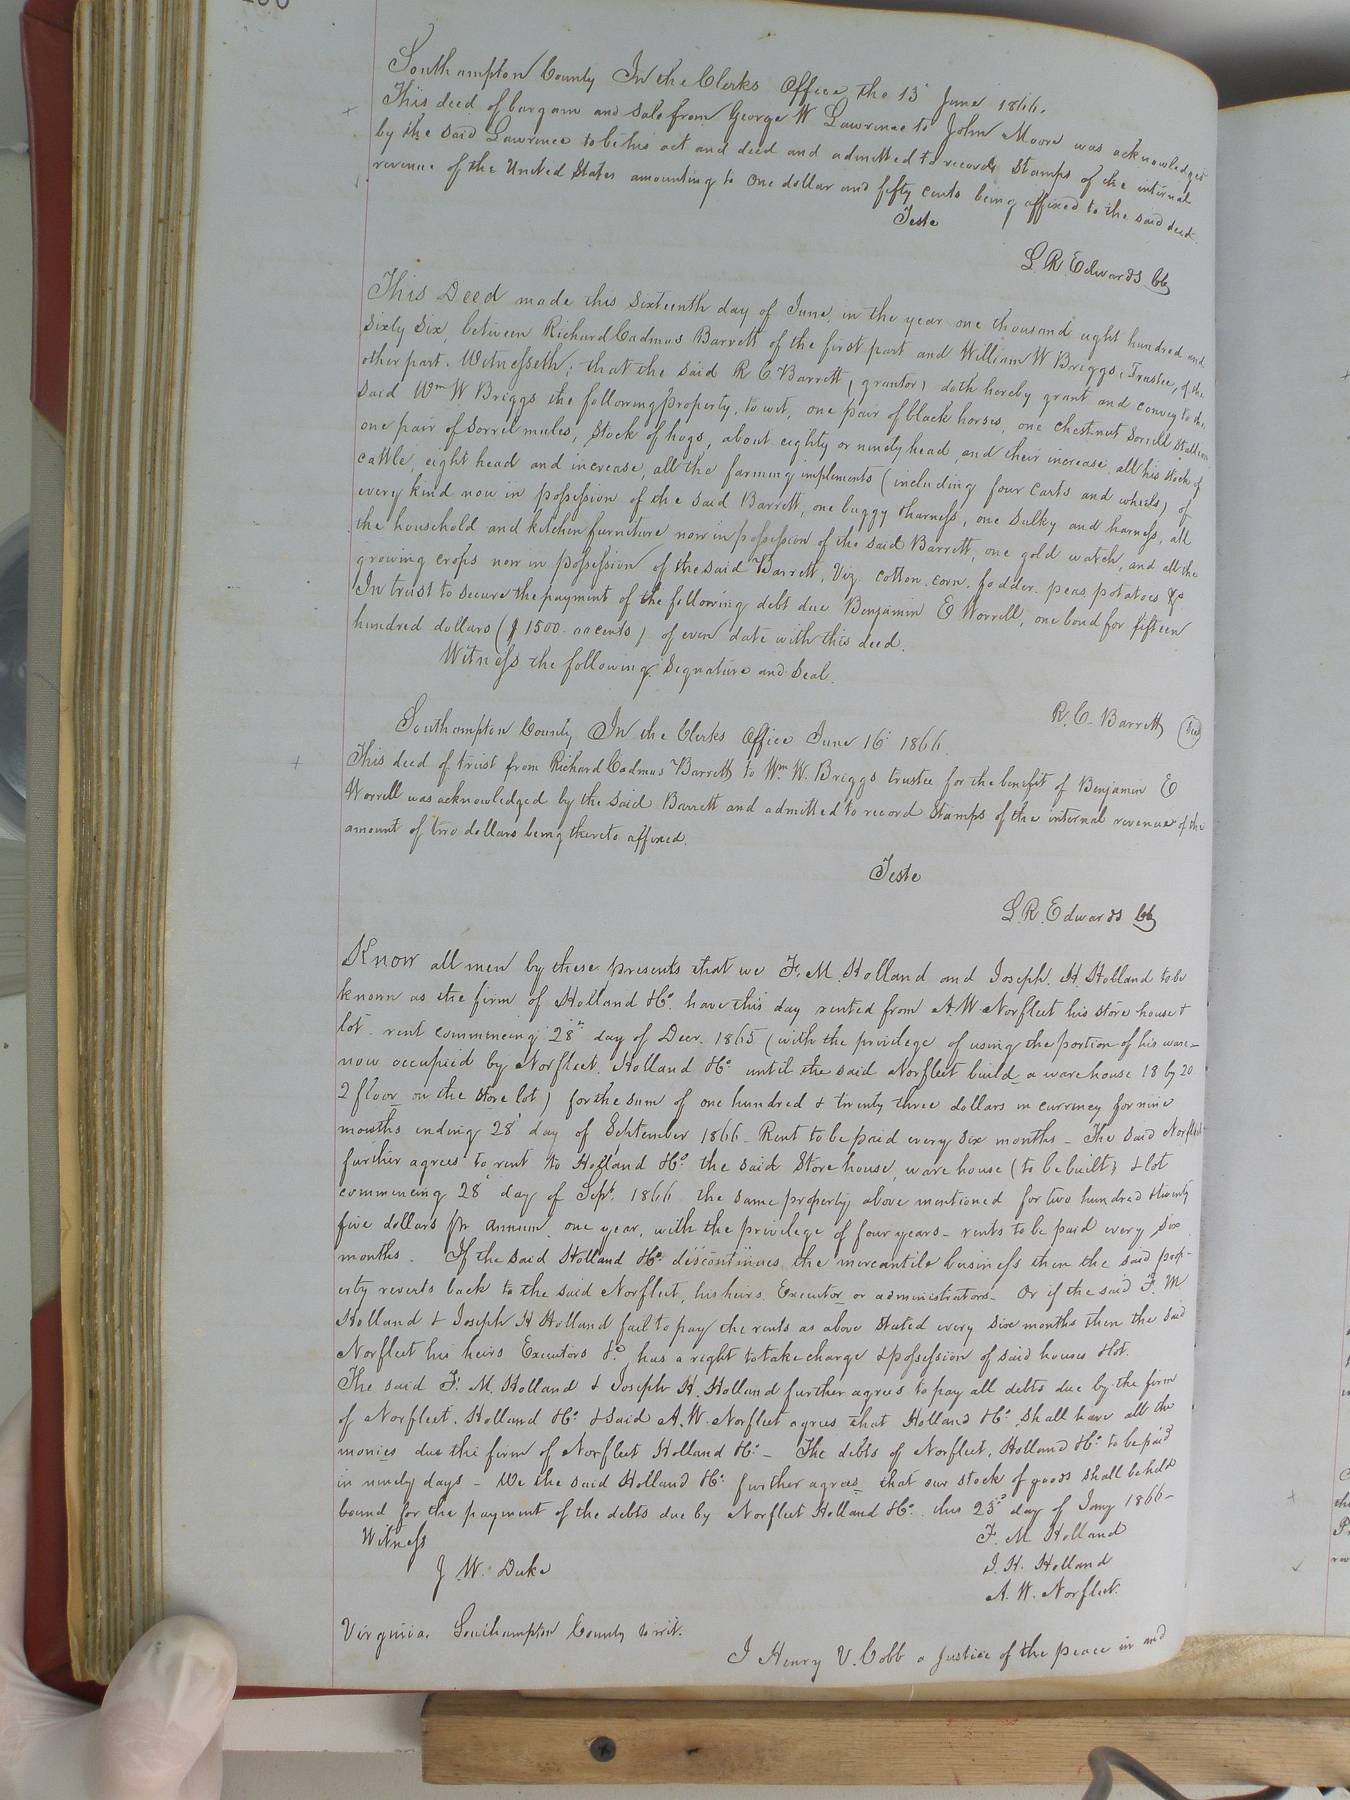 Southampton County In the Clerks Office the 13 June 1866.
This deed of bargain and sale from George W Lawrence to John Moore was acknowledged
by the said Lawrence to be his act and deed and admitted to record Stamps of the internal
revenue of the United States amounting to One dollar and fifty cents being affixed to the said deed
Teste
L. R. Edwards
This Deed made this Sixteenth day of June, in the year one thousand eight hundred and
Sixty Six, between Richard Cadmus Barrett of the first part and William W Briggs, Trustee, of the
other part. Witnesseth; that the said R C Barrett (grantor) doth hereby grant and convey to the
said Wm W Briggs the following property, to wit, one pair of black horses, one chestnut Sorrell Stallion
one pair of Sorrel mules, Stock of hogs, about eighty or ninety head, and their increase, all his stock of
cattle, eight head and increase, all the farming implements (including four Carts and wheels) of
every kind now in possession of the said Barrett, one buggy & harness, one Sulky and harness, all
the household and kitchen furniture now in possession of the said Barrett, one gold watch, and all the
growing crops now in possession of the said Barrett, Viz cotton. corn. fodder. peas, potatoes &c
In trust to secure the payment of the following debt due Benjamin E Worrell, one bond for fifteen
hundred dollars ($ 1500. no cents) of even date with this deed.
Witness the following Signature and Seal.
R. C. Barrett (Seal)
Southampton County In the Clerks Office June 16 1866.
This deed of trust from Richard Cadmus Barrett to Wm. W. Briggs trustee for the benefit of Benjamin E
Worrell was acknowledged by the said Barrett and admitted to record Stamps of the internal revenue of the
amount of two dollars being thereto affixed.
Teste
L. R. Edwards
Know all men by these presents that we F. M. Holland and Joseph. H. Holland to be
known as the firm of Holland & Co. have this day rented from A. W. Norfleet his store house &
lot. rent commencing 28th day of Decr. 1865 (with the privilege of using the portion of his ware-
now occupied by Norfleet. Holland & Co. until the said Norfleet build a ware house 18 by 20
2 floor on the store lot) for the sum of one hundred & twenty three dollars in currency for nine
months ending 28 day of September 1866 - Rent to be paid every six months - The said Norfleet
further agrees to rent to Holland & Co. the said Store house, ware house (to be built) & lot
commencing 28 day of Sept. 1866 the same property above mentioned for two hundred & twenty
five dollars pr annum, one year, with the privilege of four years - rents to be paid every six
months. If the said Holland & Co. discontinues the mercantile business then the said prop-
erty reverts back to the said Norfleet, his heirs. Executor or administrators - Or if the said F. M
Holland & Joseph H Holland fail to pay the rents as above stated every six months then the said
Norfleet his heirs Executors &c. has a right to take charge & possession of said houses & lot.
The said F. M. Holland & Joseph H. Holland further agrees to pay all debts due by the firm
of Norfleet. Holland & Co. & Said A. W. Norfleet agrees that Holland & Co. Shall have all the
monies due the firm of Norfleet Holland & Co. - The debts of Norfleet, Holland & Co. to be paid
in ninety days - We the said Holland & Co. further agrees that our stock of goods shall be held
bound for the payment of the debts due by Norfleet Holland & Co. this 23d day of Jany 1866 -
Witness F. M Holland
J W. Duke J. H. Holland
A. W. Norfleet.
Virginia. Southampton County to wit.
I Henry V. Cobb a Justice of the peace in and